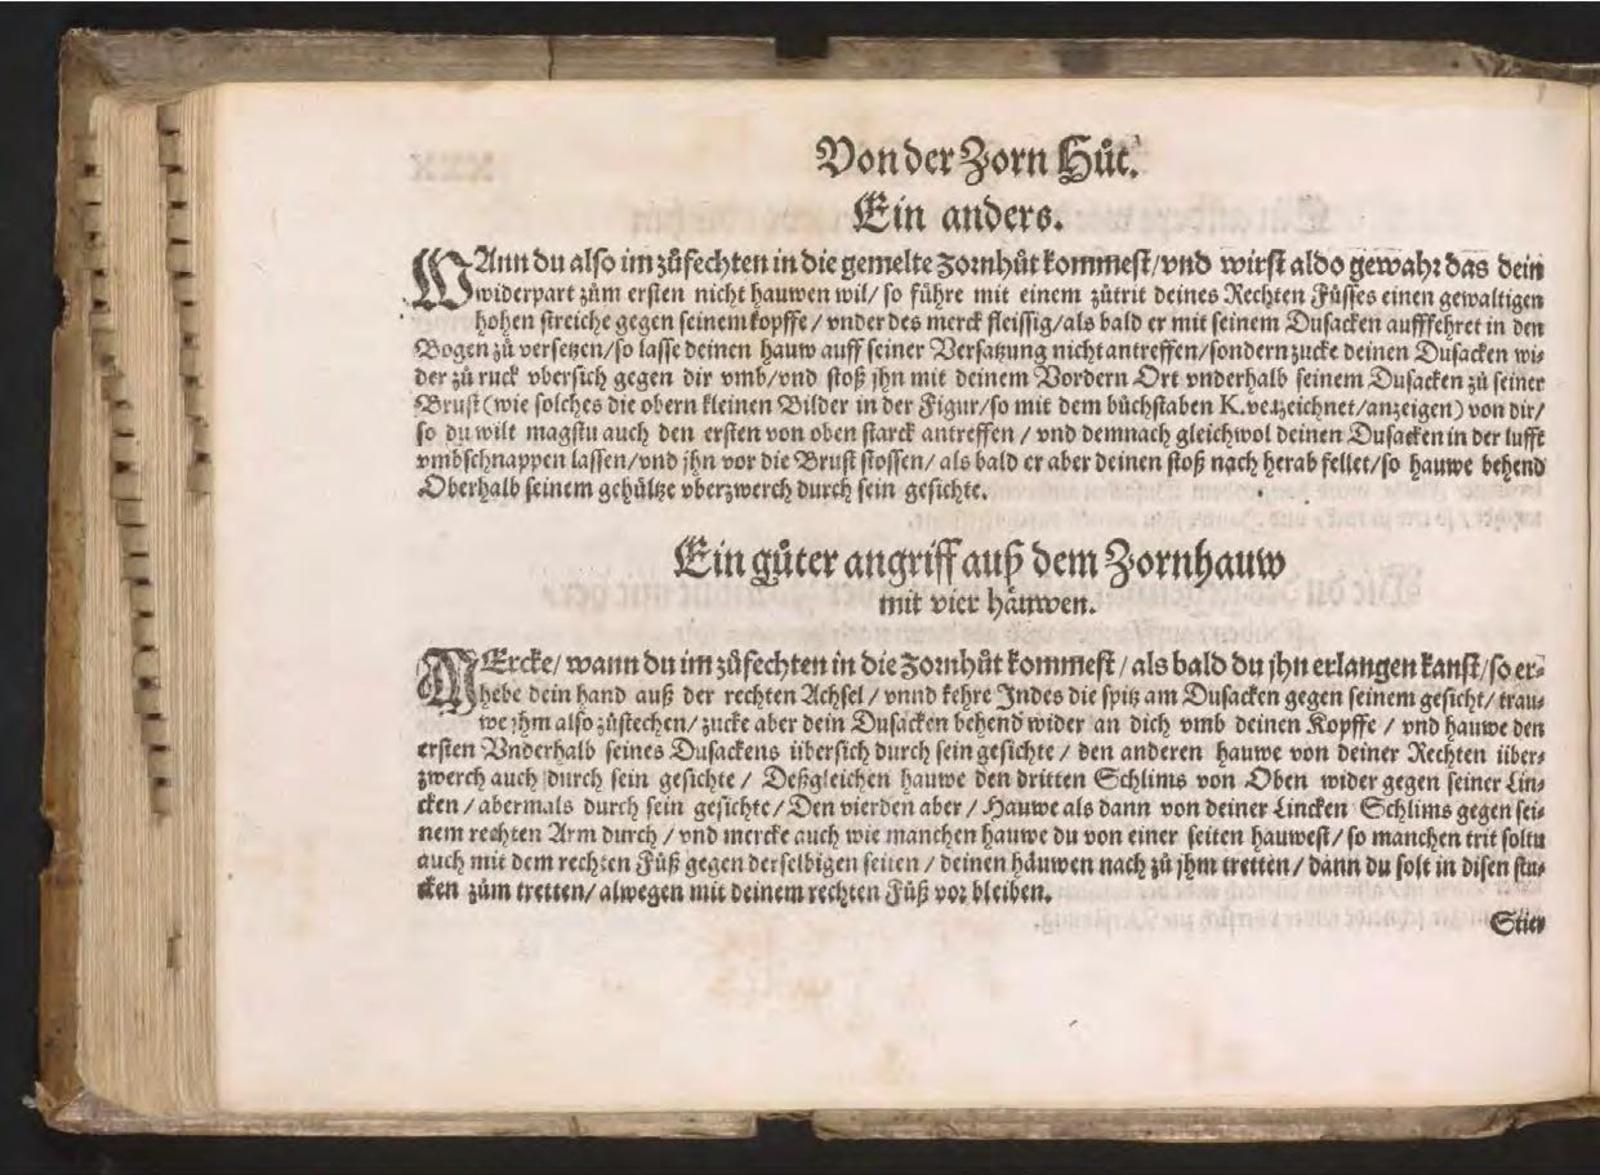 Von der Zorn Hůt.
Ein anders.
WAnn du also im zůfechten in die gemelte zornhůt kommest/vnd wirst aldo gewahr das dein
widerpart zům ersten nicht hauwen wil/ so führe mit einem zůtrit deines Rechten Fůsses einen gewaltigen
hohen streiche gegen seinem kopffe / vnder des merck fleissig/als bald er mit seinem Dusacken aufffehret in den
Bogen zů versetzen/so lasse deinen hauw auff seiner Versatzung nicht antreffen/sondern zucke deinen Dusacken wi-
der zů ruck vbersich gegen dir vmb/vnd stoß jhn mit deinem Vordern Ort vnderhalb seinem Dusacken zů seiner
Brust (wie solches die obern kleinen Bilder in der Figur/so mit dem bůchstaben K. verzeichnet/anzeigen) von dir/
so du wilt magstu auch den ersten von oben starck antreffen / vnd demnach gleichwol deinen Dusacken in der lufft
vmbschnappen lassen/vnd jhn vor die Brust stossen/ als bald er aber deinen stoß nach herab fellet/so hauwe behend
Oberhalb seinem gehültze vberzwerch durch sein gesichte.
Ein gůter angriff auß dem Zornhauw
mit vier häuwen.
MErcke/ wann du im zůfechten in die zornhůt kommest / als bald du jhn erlangen kanst/so er-
hebe dein hand auß der rechten Achsel / vnnd kehre Indes die spitz am Dusacken gegen seinem gesicht/ trau-
we jhm also zůstechen/ zucke aber dein Dusacken behend wider an dich vmb deinen Kopffe / vnd hauwe den
ersten Vnderhalb seines Dusackens übersich durch sein gesichte / den anderen hauwe von deiner Rechten über-
zwerch auch durch sein gesichte / Deßgleichen hauwe den dritten Schlims von Oben wider gegen seiner Lin-
cken / abermals durch sein gesichte / Den vierden aber / Hauwe als dann von deiner Lincken Schlims gegen sei-
nem rechten Arm durch / vnd mercke auch wie manchen hauwe du von einer seiten hauwest/ so manchen trit soltu
auch mit dem rechten Fůß gegen derselbigen seiten / deinen häuwen nach zů jhm tretten/ dann du solt in disen stu-
cken zům tretten/ alwegen mit deinem rechten Fůß vor bleiben.
Stier